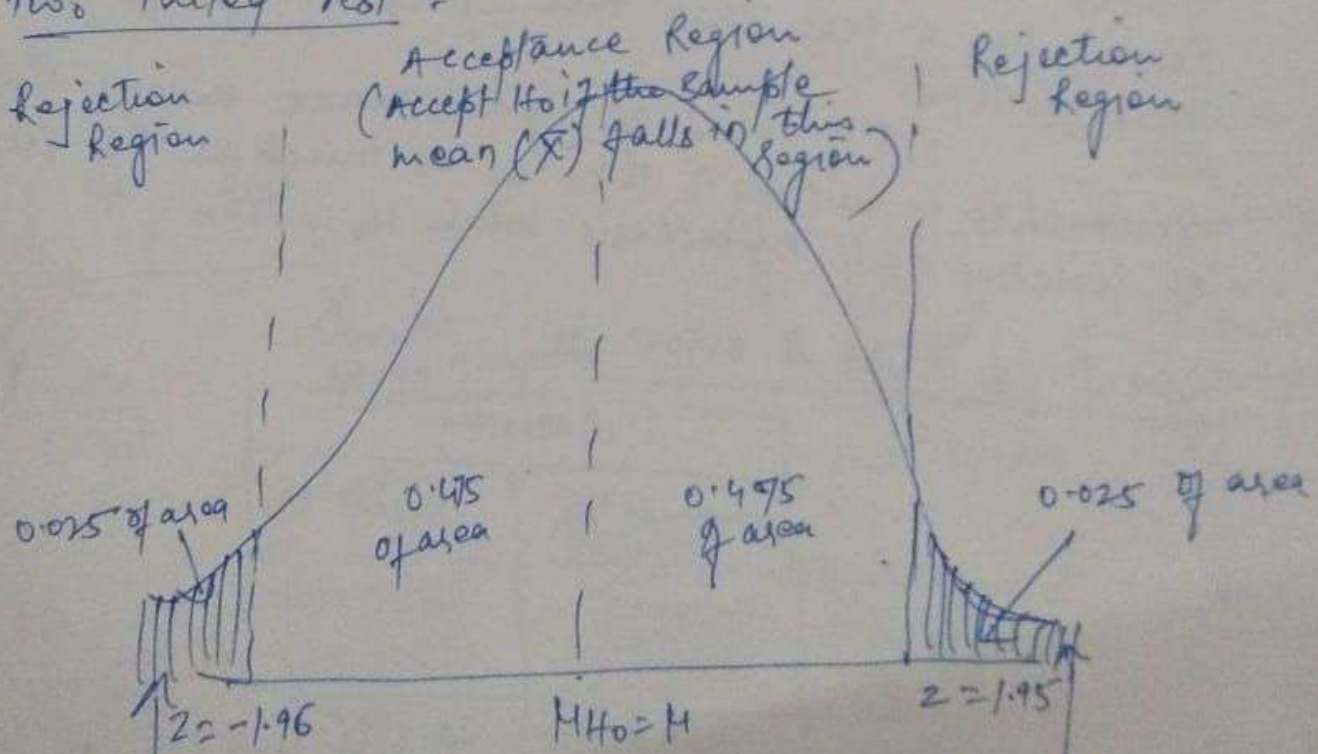 Two Tailed Test :
Rejection
Region
Acceptance Region
(Accept H0 if the Sample
mean (X̄) falls in this
Region)
Rejection
Region
0.025 of area
0.475
of area
0.4975
of area
0.025 of area
Z = -1.96
μH0 = μ
Z = 1.95